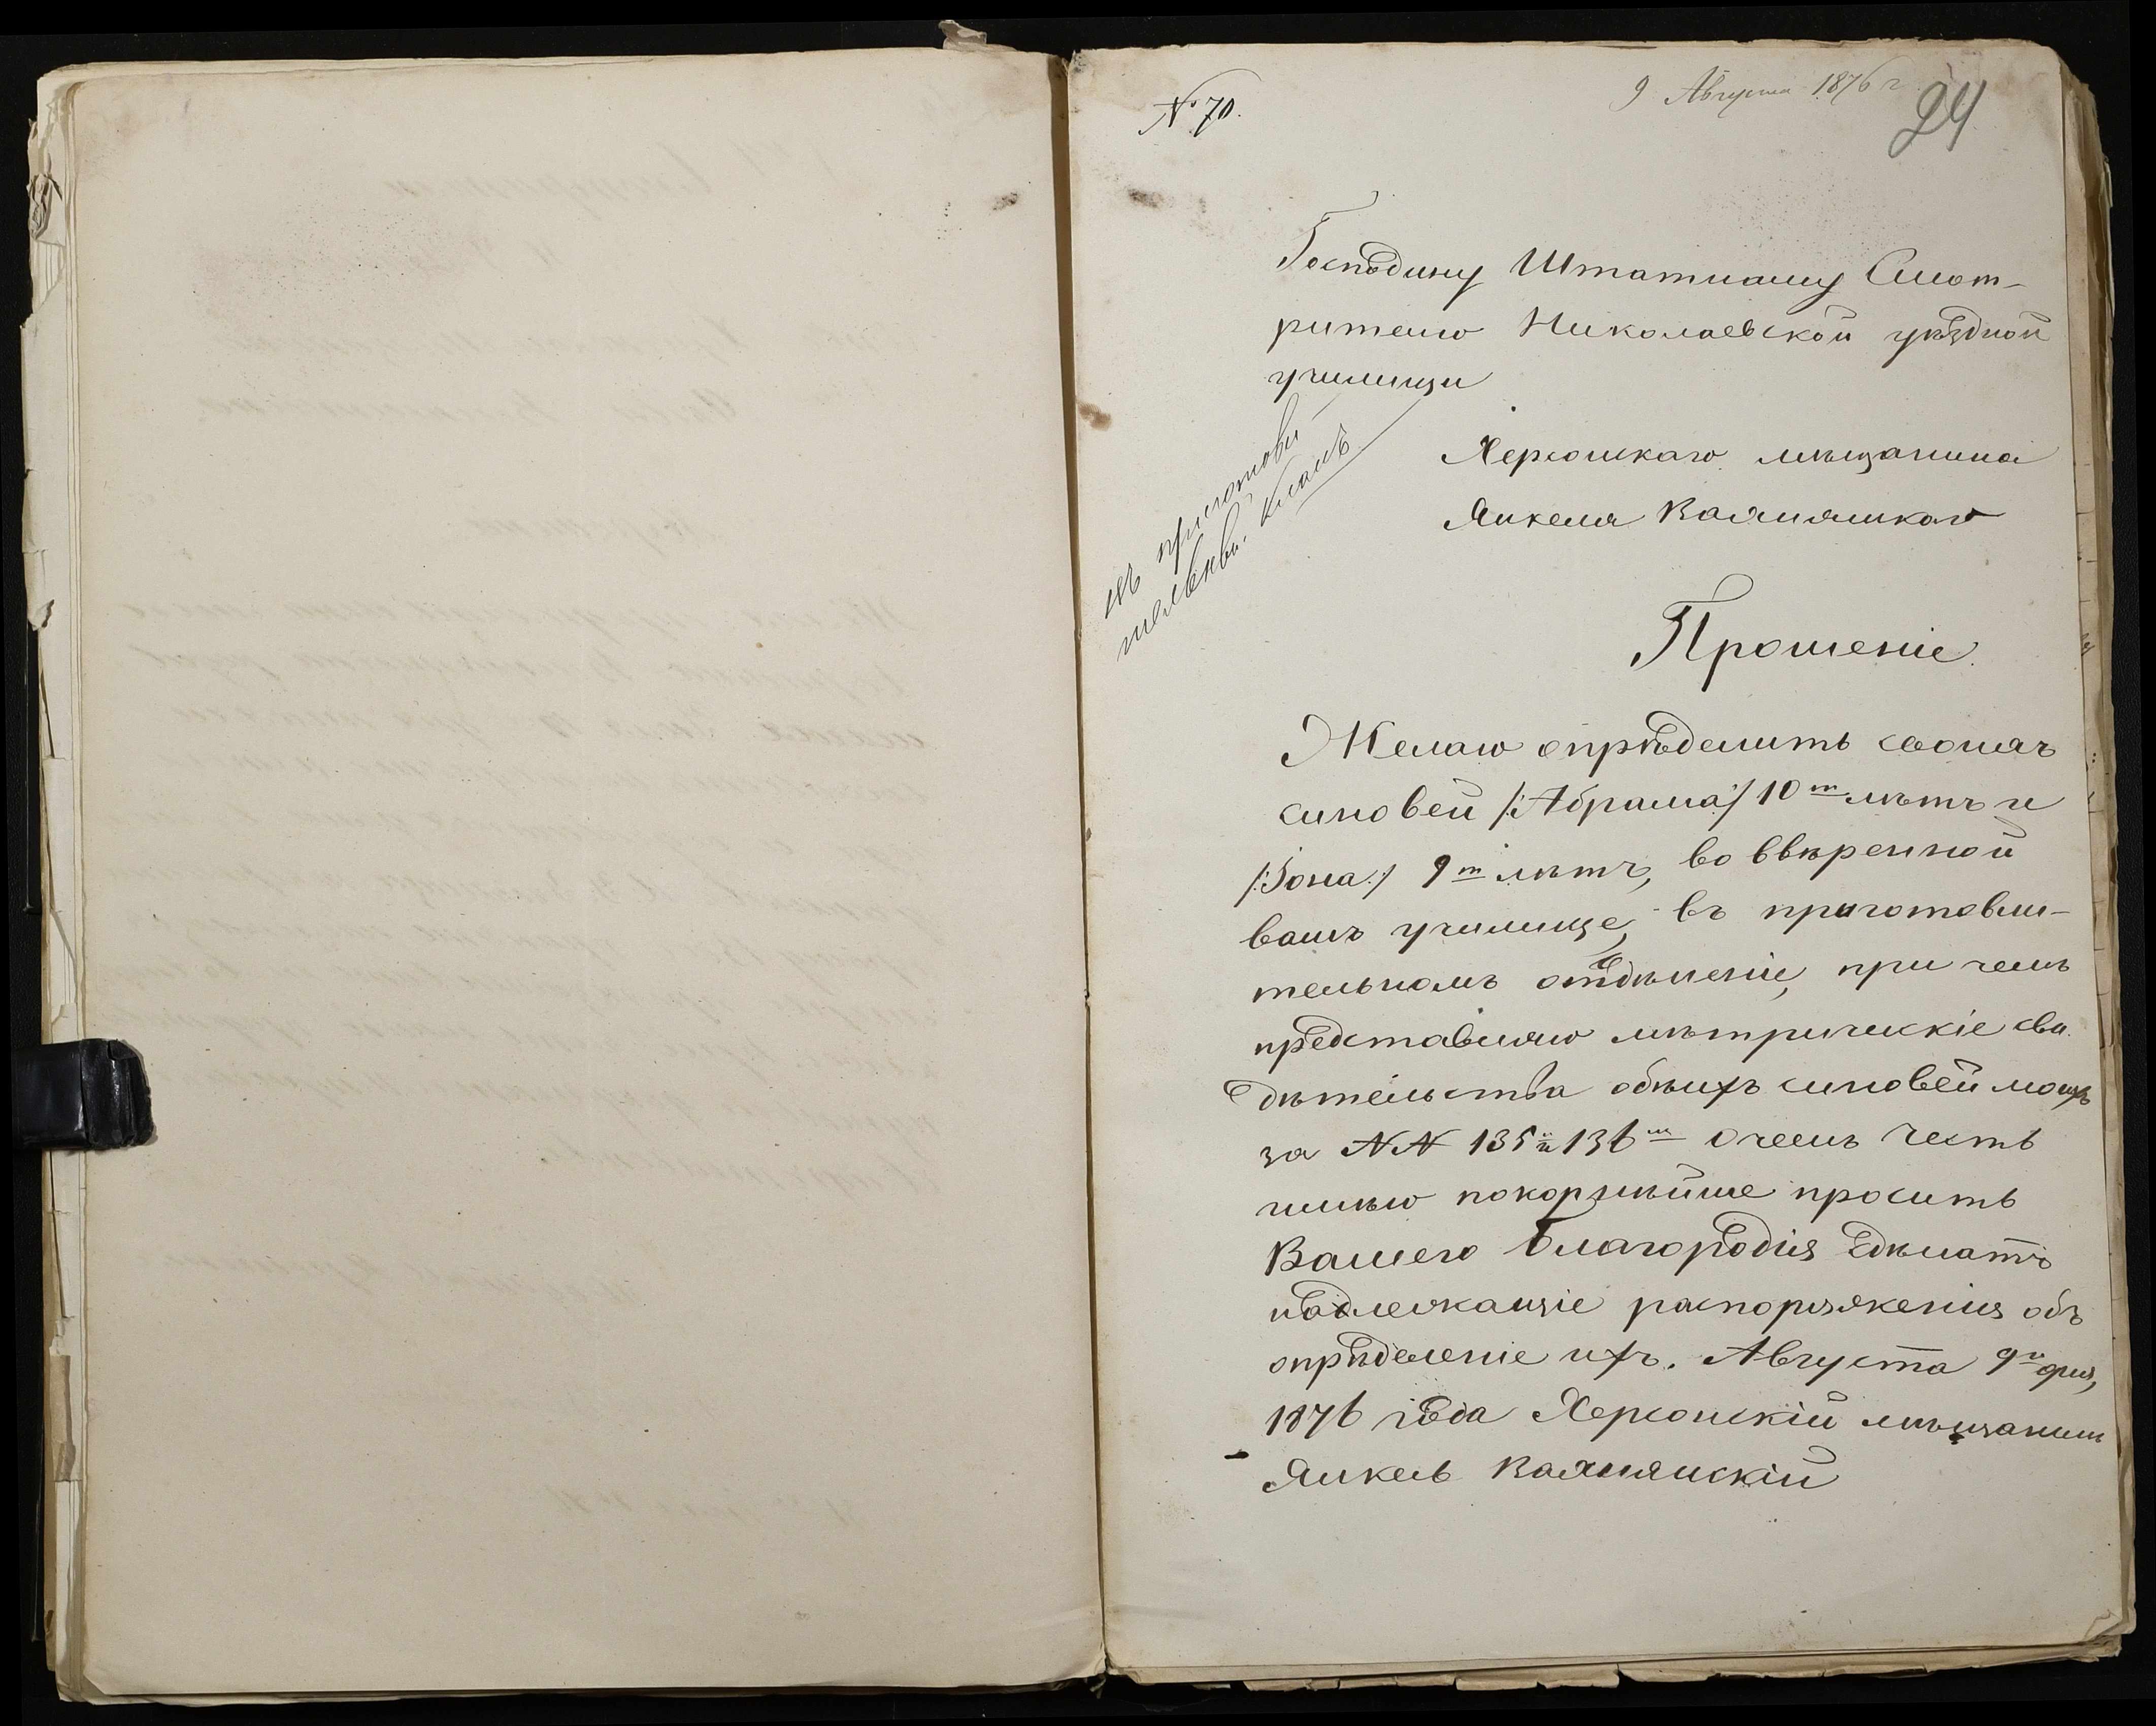 № 70.
9 Августа 1876 г
24
Господину Штатному Смот-
рителю Николаевской уѣздной
училищи
Херсонскаго мѣщанина
Янкеля
въ приготови
тельный. классъ
Прошеніе.
Желаю опрѣделить своихъ
синовей /:Абрама:/ 10 т лѣтъ и
/:Іона:/ 9 т лѣтъ, во ввѣренной
вамъ училище, въ приготовли-
тельномъ отдѣленіе, при чемъ
представляю мѣтрическіе сви
дѣтельства обѣихъ синовей моихъ
за NN 135 и 136 м О чемъ честь
имѣю покорнѣйше просить
Вашего Благородія сдѣлать
надлежащіе распоряженія объ
опрѣделеніе ихъ. Августа 9 го дня,
1876 года Херсонскій мѣщанинъ
Янкель